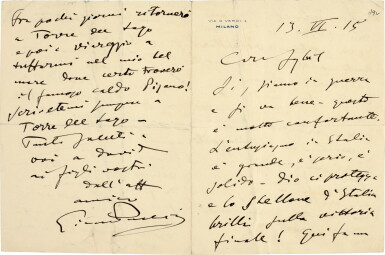 MILANO
13. VI. 15
Cara Sybil
Si, siamo in guerra
e si va bene - questo
è molto confortante.
L'entusiasmo in Italia
è grande, è serio, è
solido - Dio ci protegga
e lo Stellone d'Italia
brilli sulla vittoria
finale! Qui fa un
Fra pochi giorni ritornerò
a Torre del Lago
e poi a Viareggio a
tuffarmi nel mio bel
mare dove certo troverò
il famoso caldo Pisano!
Scrivetemi sempre a
Torre del Lago -
Tanti saluti a
voi a David
ai figli vostri
dall'aff
amico
Giacomo Puccini